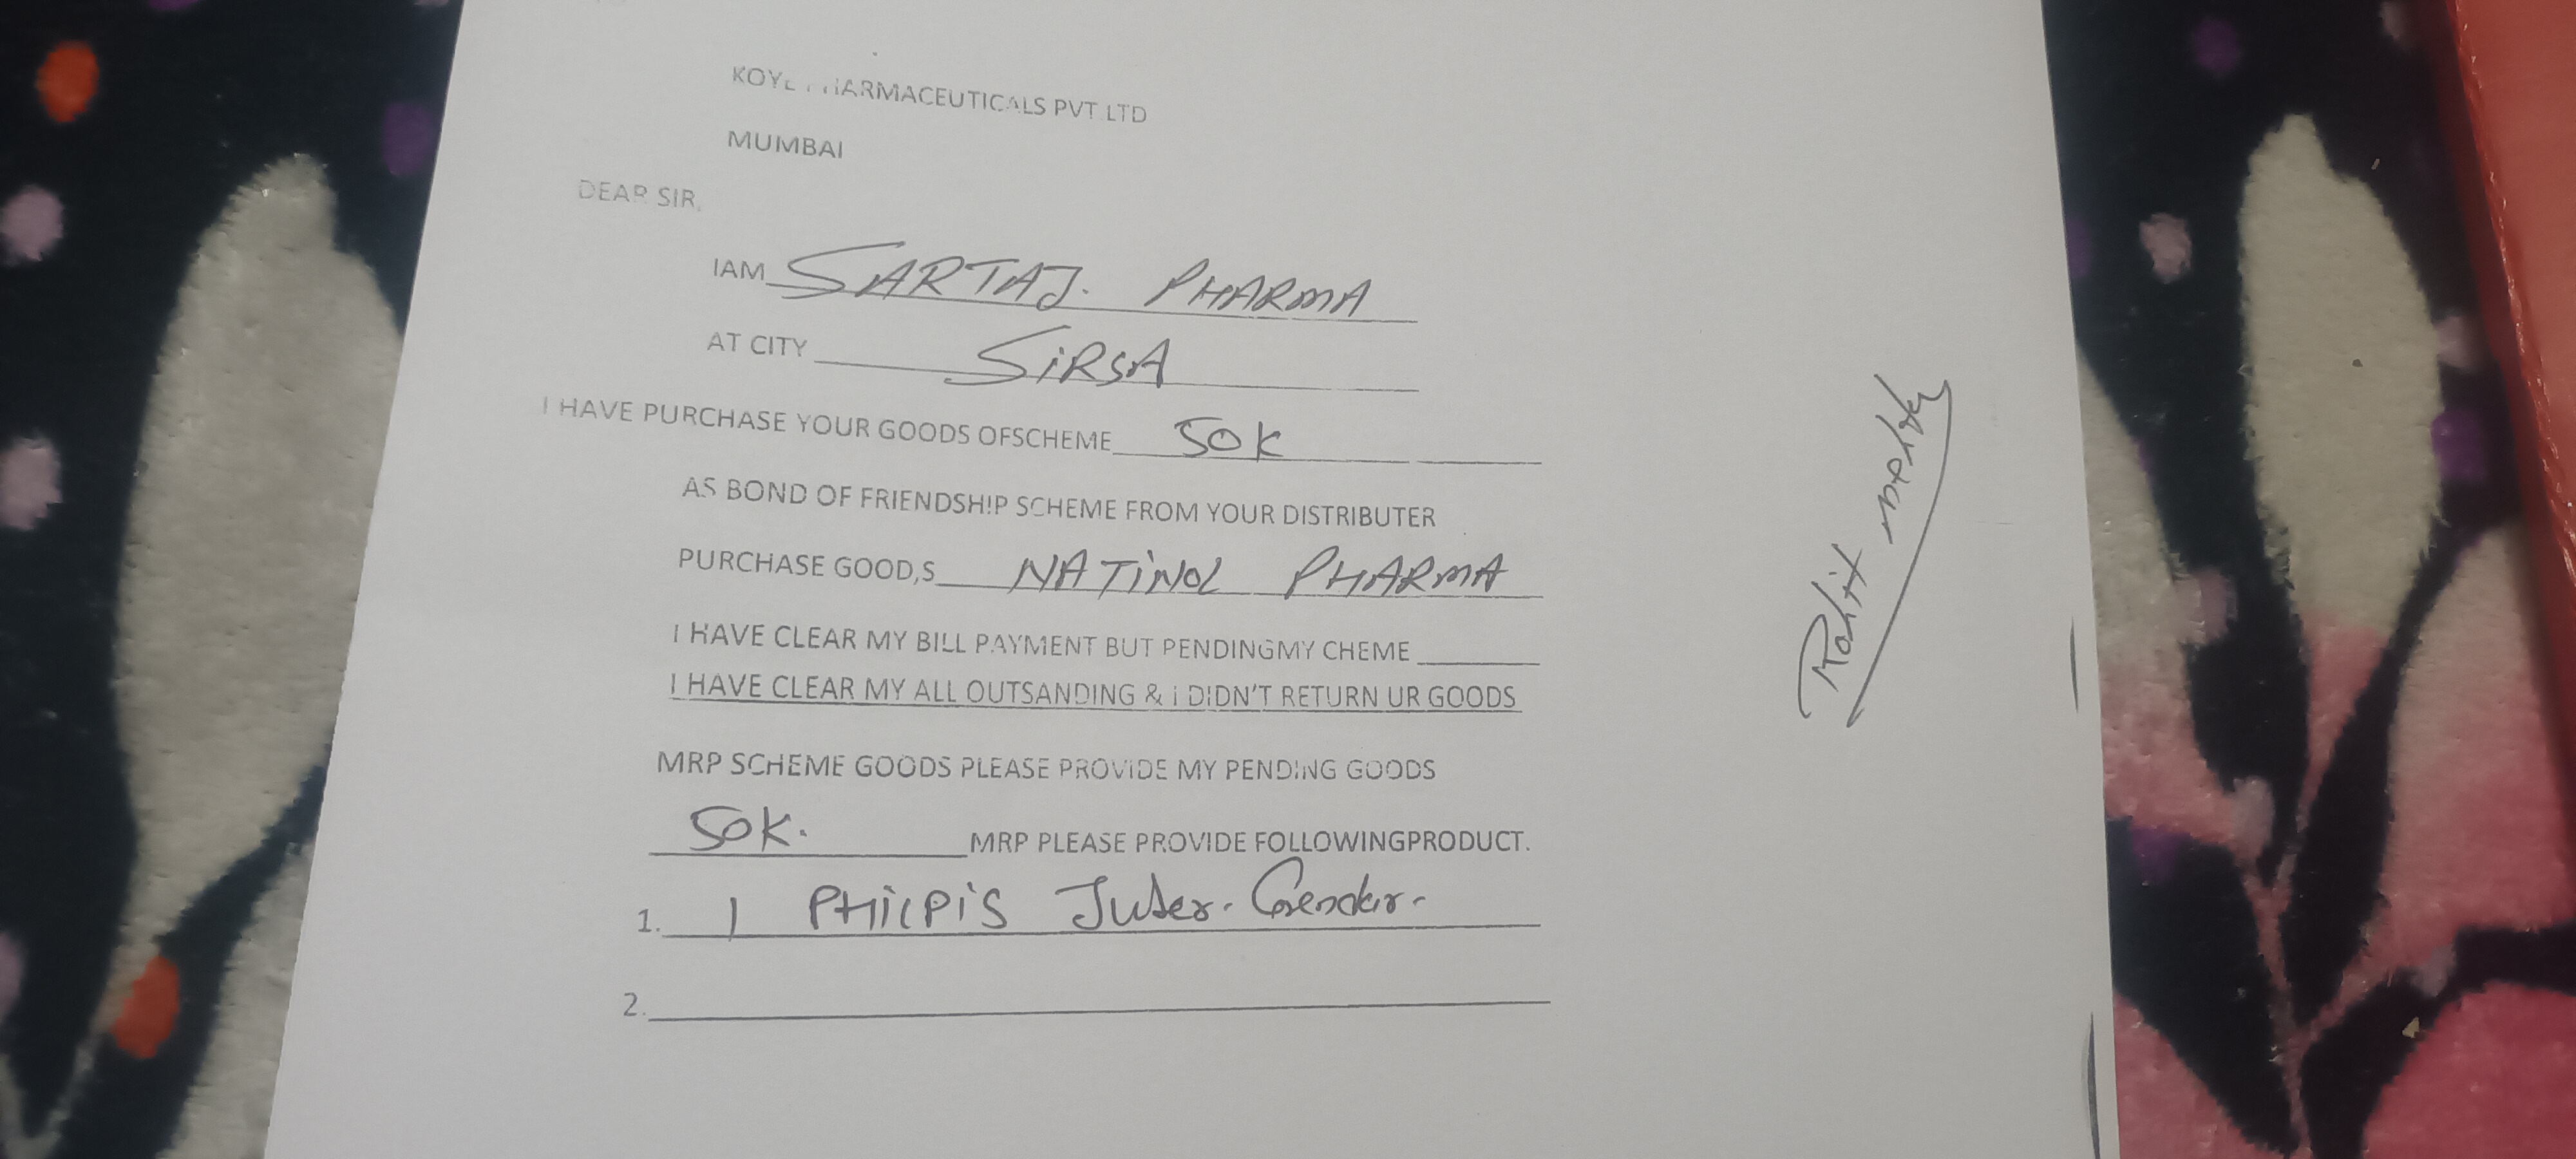 KOYE PHARMACEUTICALS PVT.LTD
MUMBAI
DEAR SIR,
IAM SARTAJ. PHARMA
AT CITY SIRSA
I HAVE PURCHASE YOUR GOODS OFSCHEME 50K
AS BOND OF FRIENDSHIP SCHEME FROM YOUR DISTRIBUTER
PURCHASE GOOD,S NATINOL PHARMA
I HAVE CLEAR MY BILL PAYMENT BUT PENDINGMY CHEME
I HAVE CLEAR MY ALL OUTSANDING & I DIDN'T RETURN UR GOODS
MRP SCHEME GOODS PLEASE PROVIDE MY PENDING GOODS
50K. MRP PLEASE PROVIDE FOLLOWINGPRODUCT.
1. 1 PHILPIS
2.
Rohit